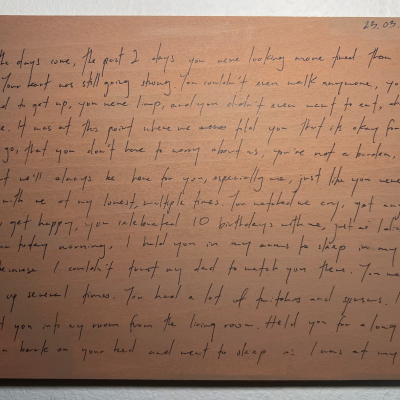 23.03.
the days come, the past 2 days you were looking more tired than
Your heart was still going strong. You couldn't even walk anymore, yo
to get up, you were limp, and you didn't even want to eat,
. It was at this point where we told you that its okay for
go, that you don't have to worry about us, you're not a burden,
we'll always be here for you, especially me, just like you were
with me at my lowest, multiple times. You watched me cry, got
get happy, you celebrated 10 birthdays with me, just as I
today morning. I held you in my arms to sleep in my
because I couldn't trust my dad to watch you there. You
up several times. You had a lot of twitches and spasms. I
you into my room from the living room. Held you for a long
back on your bed and went to sleep as I was at my